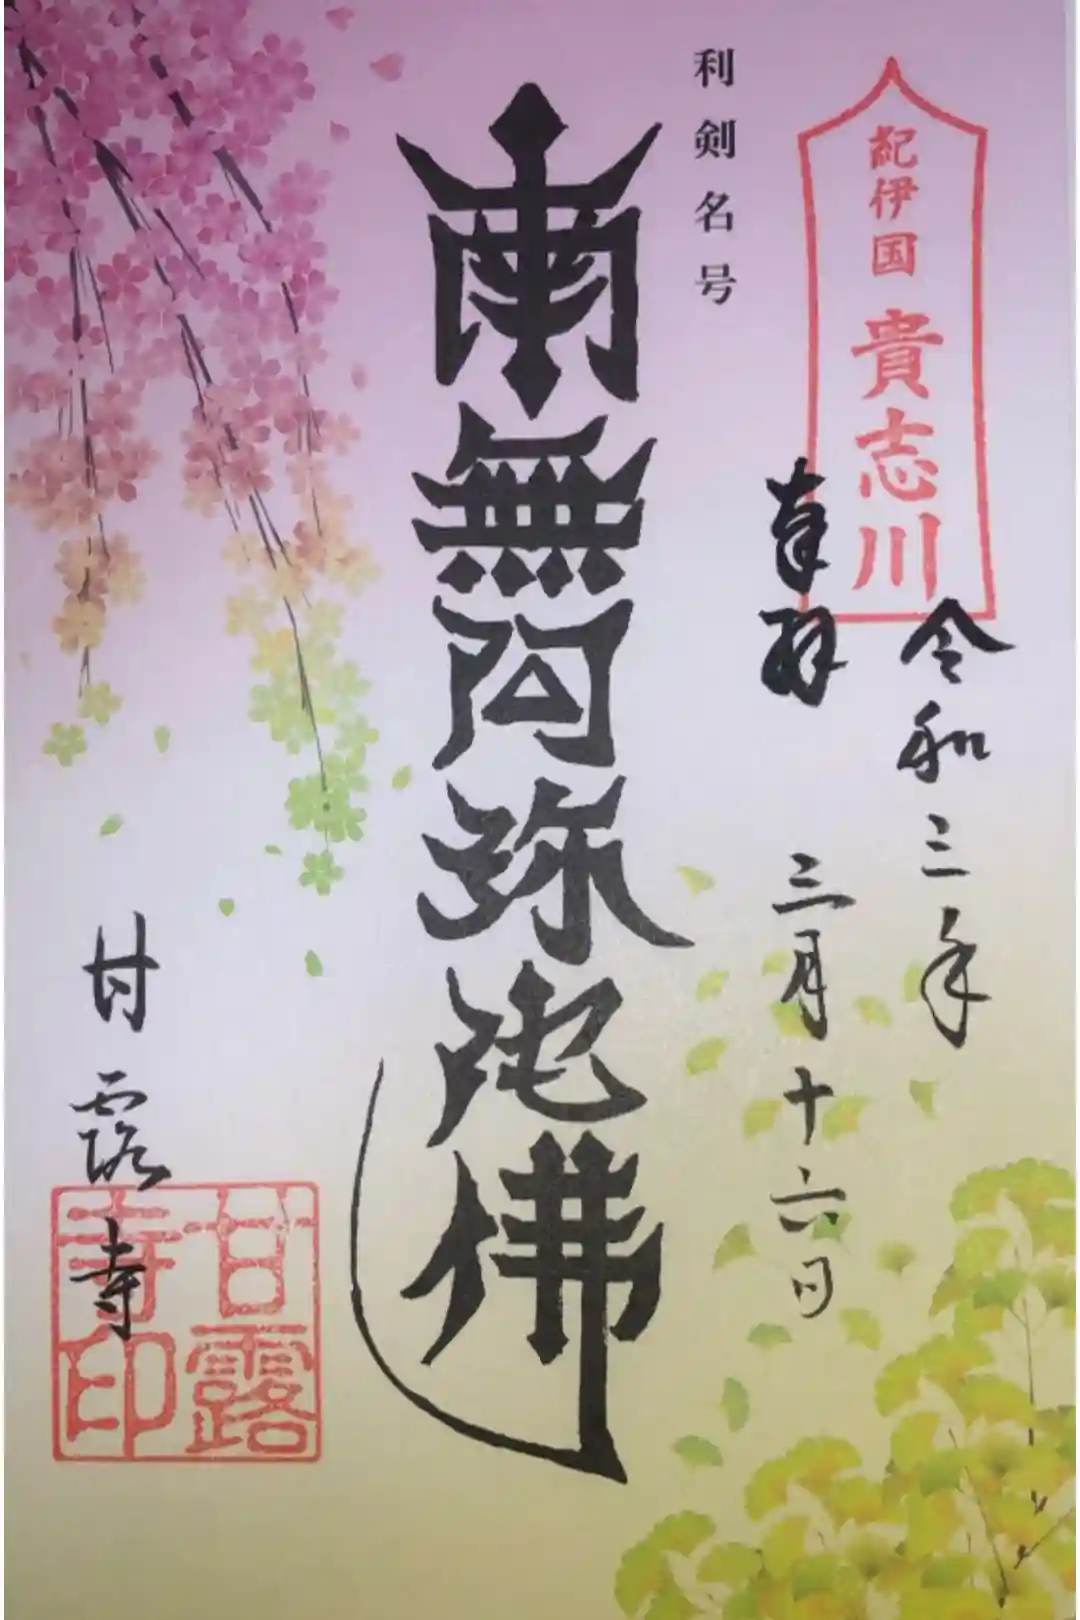 紀伊国 貴志川
令和三年
奉拝
三月十六日
利剣名号
南無阿弥陀佛
甘露寺
甘露寺印